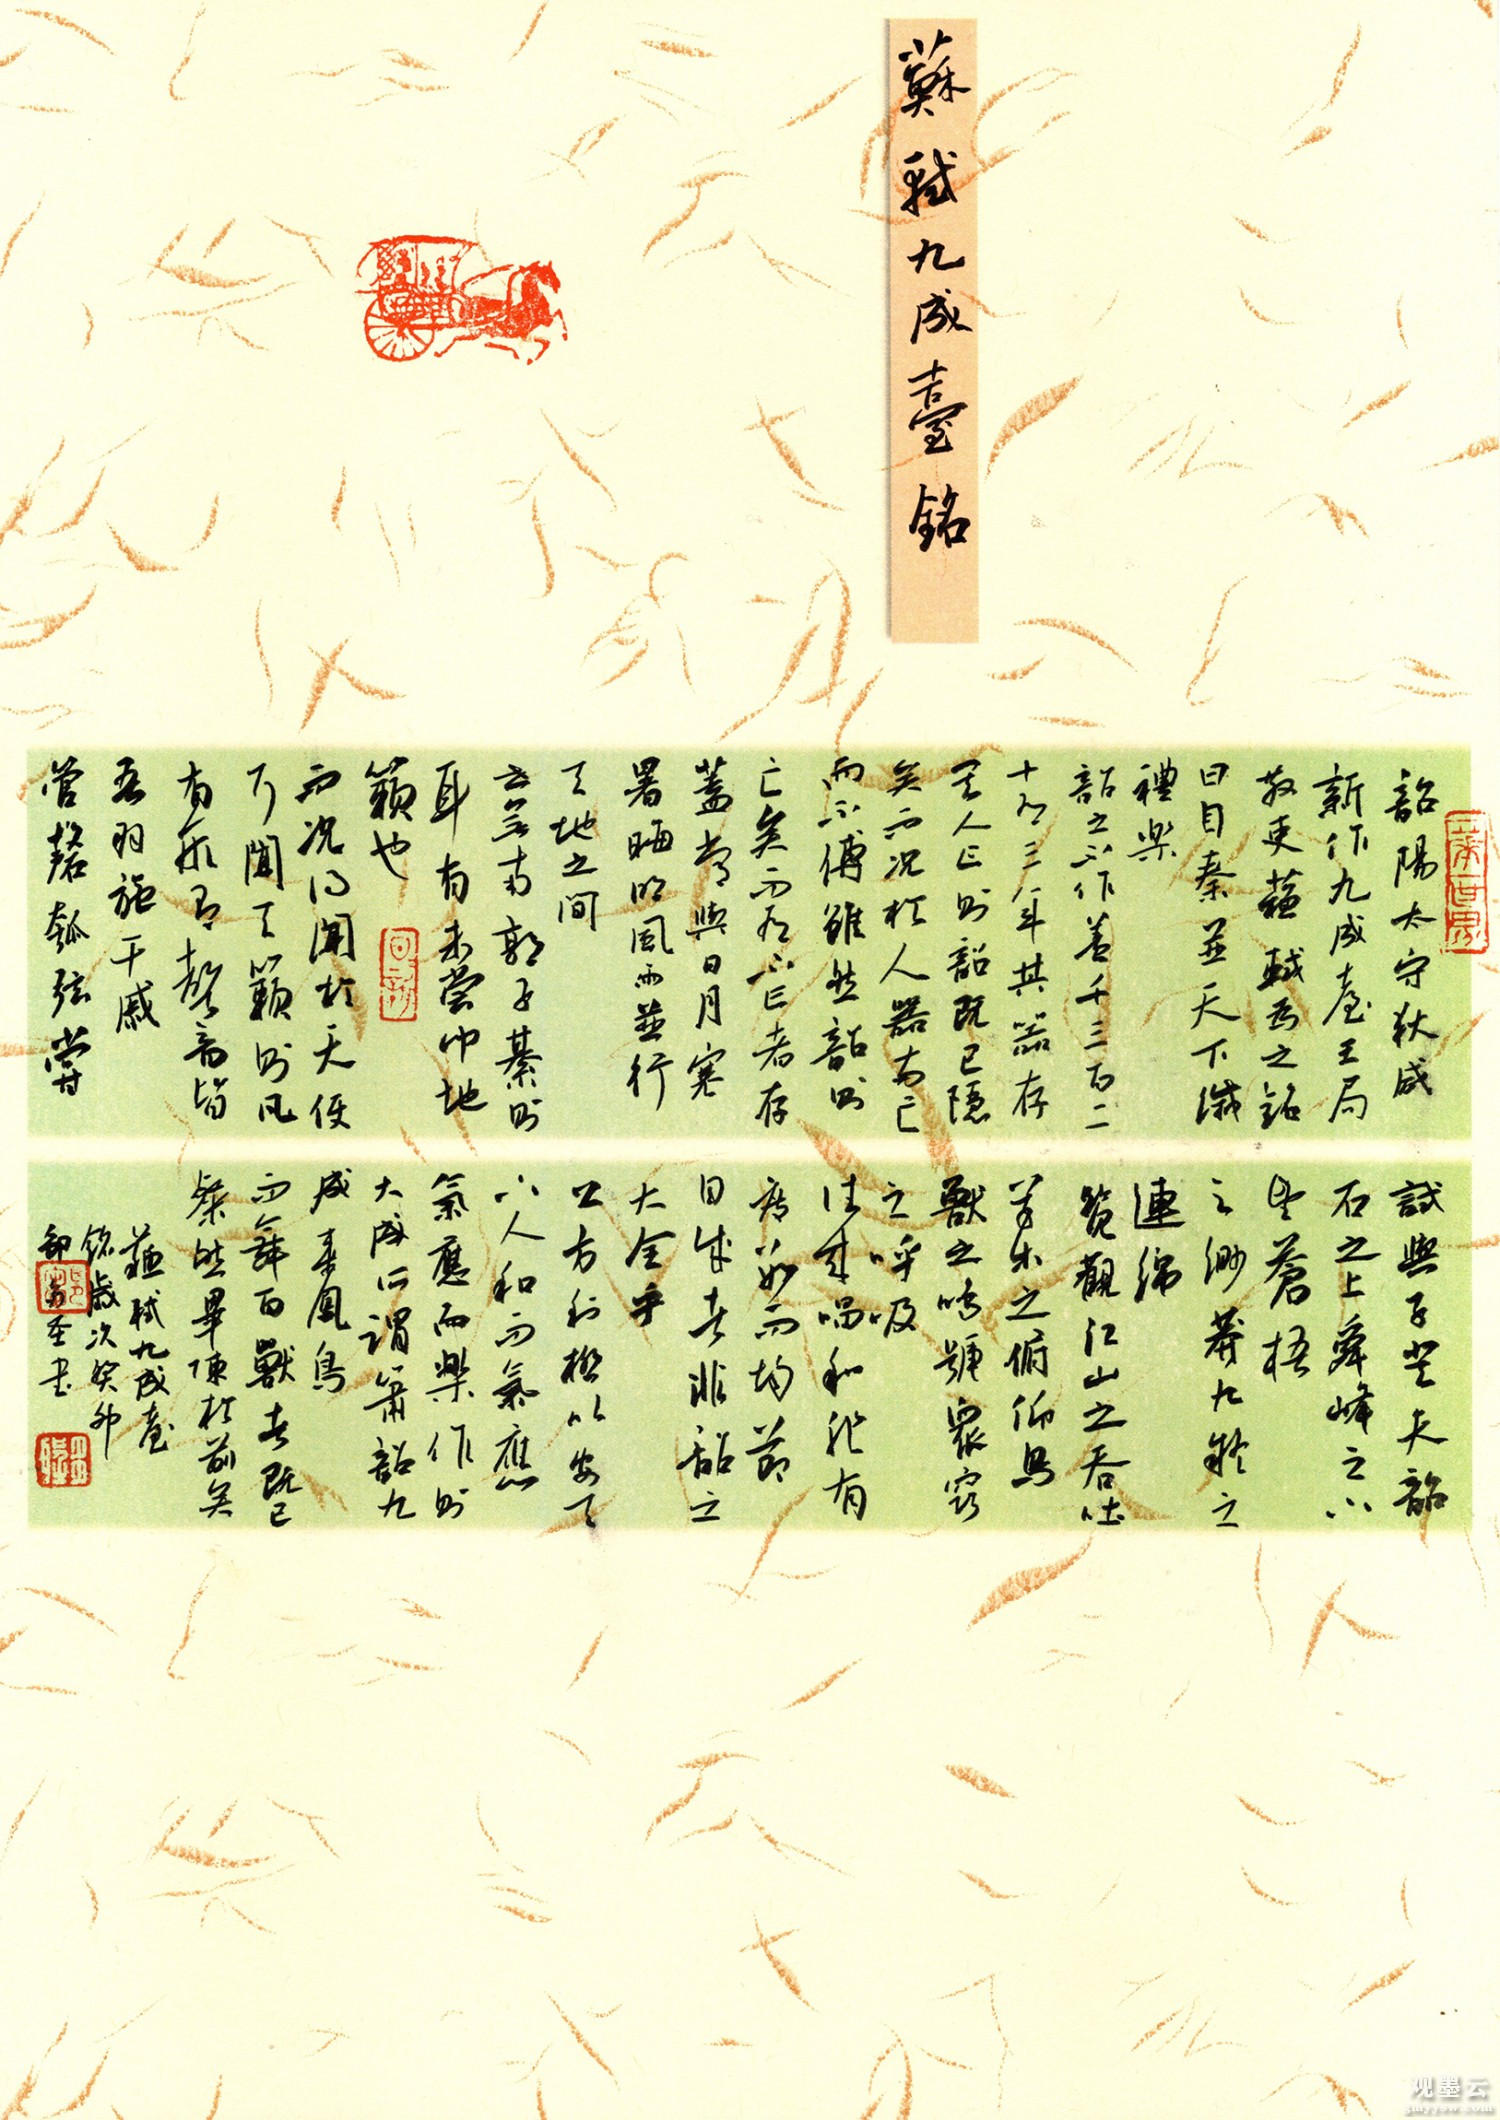 蘇軾九成臺銘
韶陽太守狄咸
新作九成臺玉局
散吏蘇軾為之銘
曰自秦並天下滅
禮樂
韶之不作蓋千三百二
十有三年其器存
其人亡則韶既已隱
矣而況於人器兩亡
而不傳雖然韶則
亡矣而有不亡者存
蓋常與日月寒
暑晦明風雨並行
天地之間
世無南郭子綦則
耳有未嘗聞地
籟也
而況得聞於天使
耳聞天籟則凡
有形有聲音皆
吾羽旄干戚
管磬匏弦嘗
試與子登夫韶
石之上舜峰之下
望蒼梧
之渺莽九疑之
連綿
覽觀江山之吞吐
草木之俯仰鳥
獸之鳴號眾竅
之呼吸
往來唱和非有
度數而均節
自成者非韶之
大全乎
上方立極以安天
下人和而氣應
氣應而樂作則
大成所謂簫韶九
成來鳳鳥
而舞百獸者既已
粲然畢陳於前矣
蘇軾九成臺
銘歲次癸卯
书
观墨云
gmyyow.com